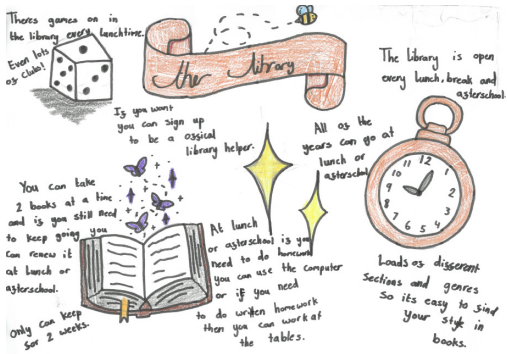 Theres games on in
the library every lunchtime.
Even lots
of clubs!
the library
The library is open
every lunch, break and
afterschool.
If you want
you can sign up
to be a offical
library helper.
All of the
years can go at
lunch or
afterschool
11 12 1 2 3 4 5 6 7 8 9 10
You can take
2 books at a time
and if you still need
to keep going you
can renew it
at lunch or
afterschool.
Only can keep
for 2 weeks.
At lunch
or afterschool if you
need to do homework
you can use the computer
or if you need
to do written homework
then you can work at
the tables.
Loads of different
sections and genres
so its easy to find
your style in
books.